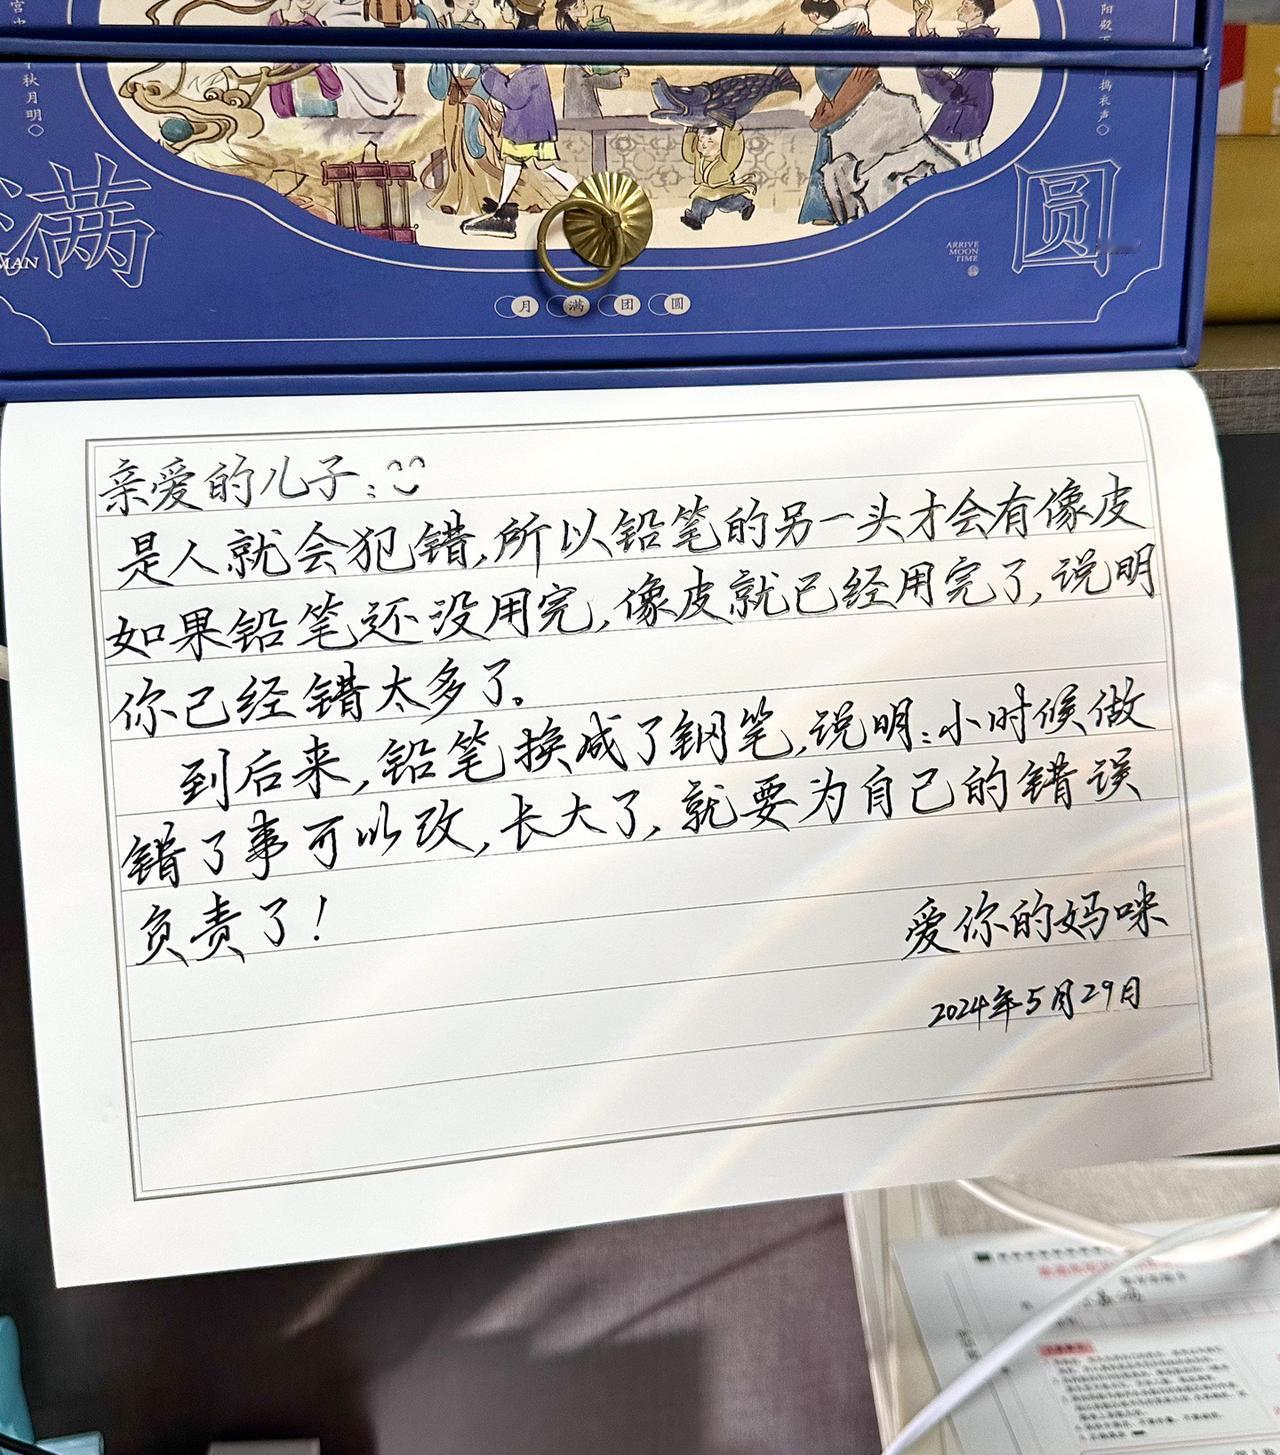 秋月明
阳殿
捣衣声
满
MAN
圆
ARRIVE
MOON
TIME
月满团圆
亲爱的儿子:
是人就会犯错,所以铅笔的另一头才会有像皮
如果铅笔还没用完,像皮就已经用完了,说明
你已经错太多了。
到后来,铅笔换成了钢笔,说明:小时候做
错了事可以改,长大了,就要为自己的错误
负责了!
爱你的妈咪
2024年5月29日